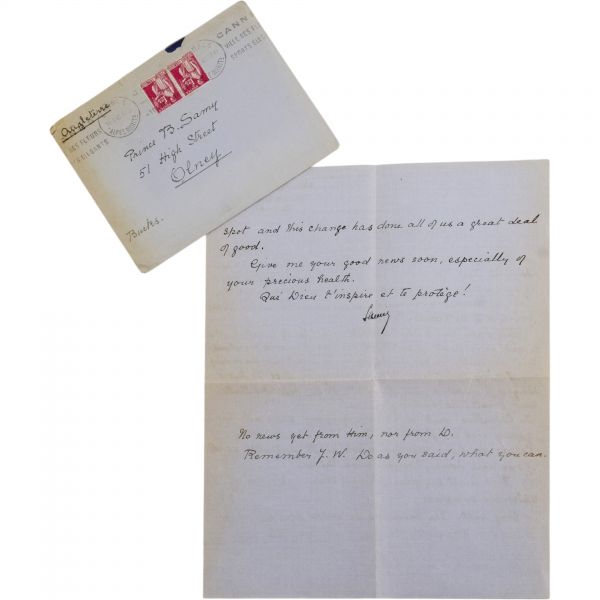 CANN
VILLE DES FL
SPORTS ELE
Angleterre
DES FLEURS
ELEGANTS
Prince B. Samy
51 High Street
Olney
Bucks.
spot and this change has done all of us a great deal
of good.
Give me your good news soon, especially of
your precious health.
Que Dieu t'inspire et te protège!
Samy
No news yet from Him, nor from D.
Remember J. W. Do as you said, what you can.